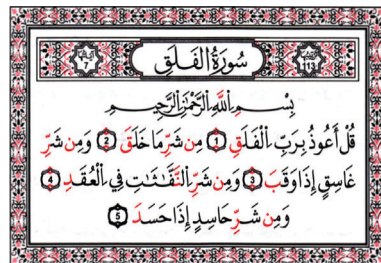 سُورَةُ الْفَلَقِ
113
بِسْمِ اللَّهِ الرَّحْمَٰنِ الرَّحِيمِ
قُلْ أَعُوذُ بِرَبِّ الْفَلَقِ 1 مِن شَرِّ مَا خَلَقَ 2 وَمِن شَرِّ
غَاسِقٍ إِذَا وَقَبَ 3 وَمِن شَرِّ النَّفَّٰثَٰتِ فِي الْعُقَدِ 4
وَمِن شَرِّ حَاسِدٍ إِذَا حَسَدَ 5